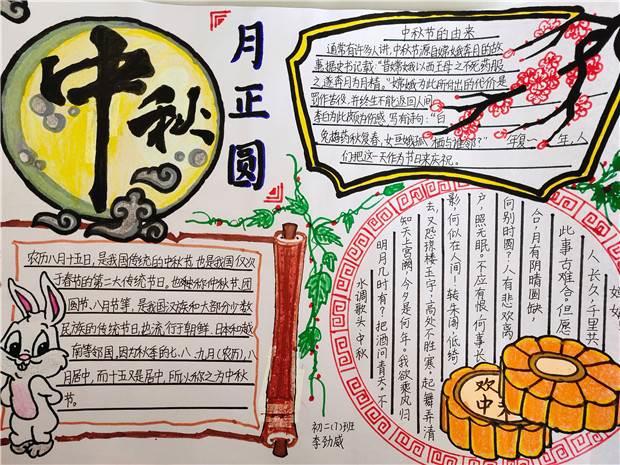 中秋
月正圆
中秋节的由来
通常有许多人讲,中秋节源自嫦娥奔月的故
事,据史书记载:"昔嫦娥以西王母之不死药服
之遂奔月为月精。"嫦娥为此所付出的代价是
罚作苦役,并终生不能返回人间
李白为此颇为伤感 写有诗句:"白
兔捣药秋复春,女亘娥孤 栖与谁邻?"年复一 年,人
们把这一天作为节日来庆祝。
农历八月十五日,是我国传统的中秋节,也是我国仅次
于春节的第二大传统节日,也被称中秋节,团
圆节,八月节等,是我国汉族和大部分少数
民族的传统节日也流行于朝鲜、日本和越
南等邻国,因为秋季的七、八、九月(农历),八
月居中,而十五又是居中,所以称之为中秋
节。
初二(1)班
李劲威
水调歌头·中秋
明月几时有?把酒问青天。不
知天上宫阙,今夕是何年。我欲乘风归
去,又恐琼楼玉宇,高处不胜寒。起舞弄清
影,何似在人间!转朱阁,低绮
户,照无眠。不应有恨,何事长
向别时圆?人有悲欢离
合,月有阴晴圆缺,
此事古难全。但愿
人长久,千里共
婵娟!
欢
中